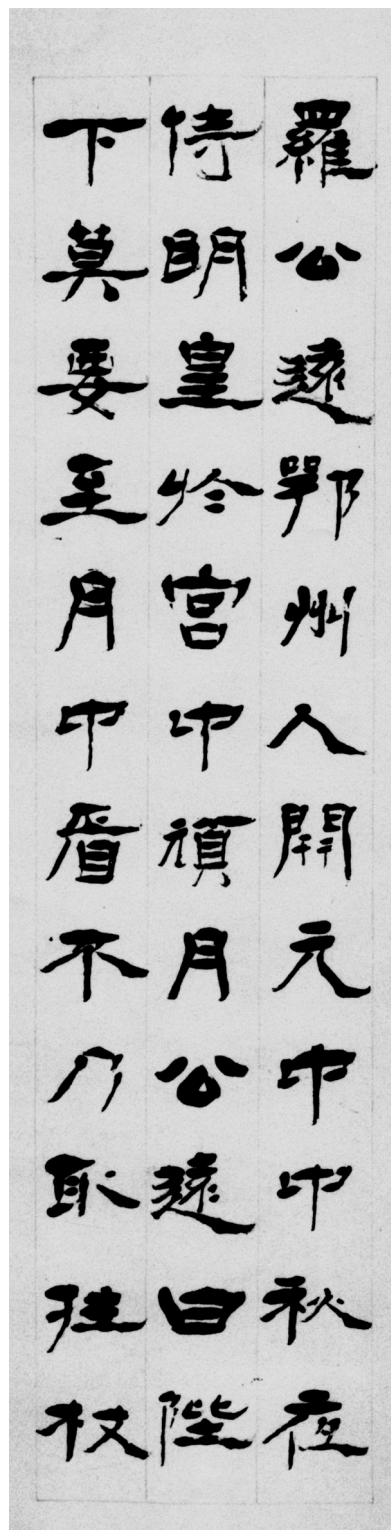 羅公遠鄂州人開元中中秋夜
侍明皇於宮中翫月公遠曰陛
下莫要至月中看不乃取拄杖